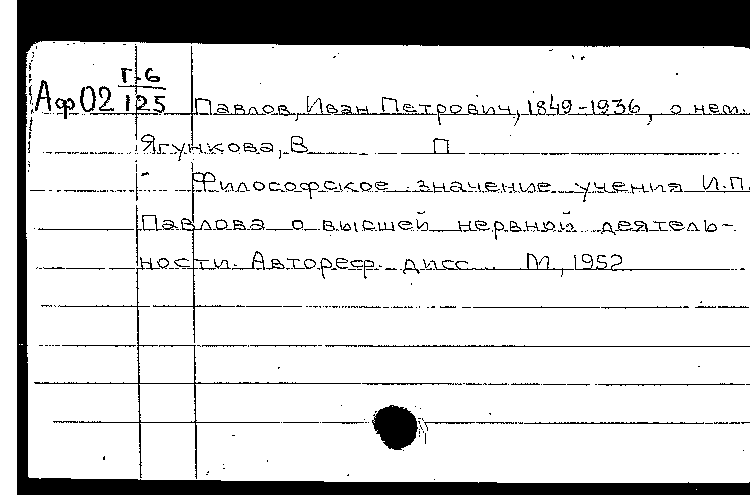 Г-6
Аф02 125 Павлов, Иван Петрович, 1849-1936, о нем.
Ягункова, В П
Философское значение учения И.П.
Павлова о высшей нервной деятель-
ности. Автореф. дисс... М., 1952